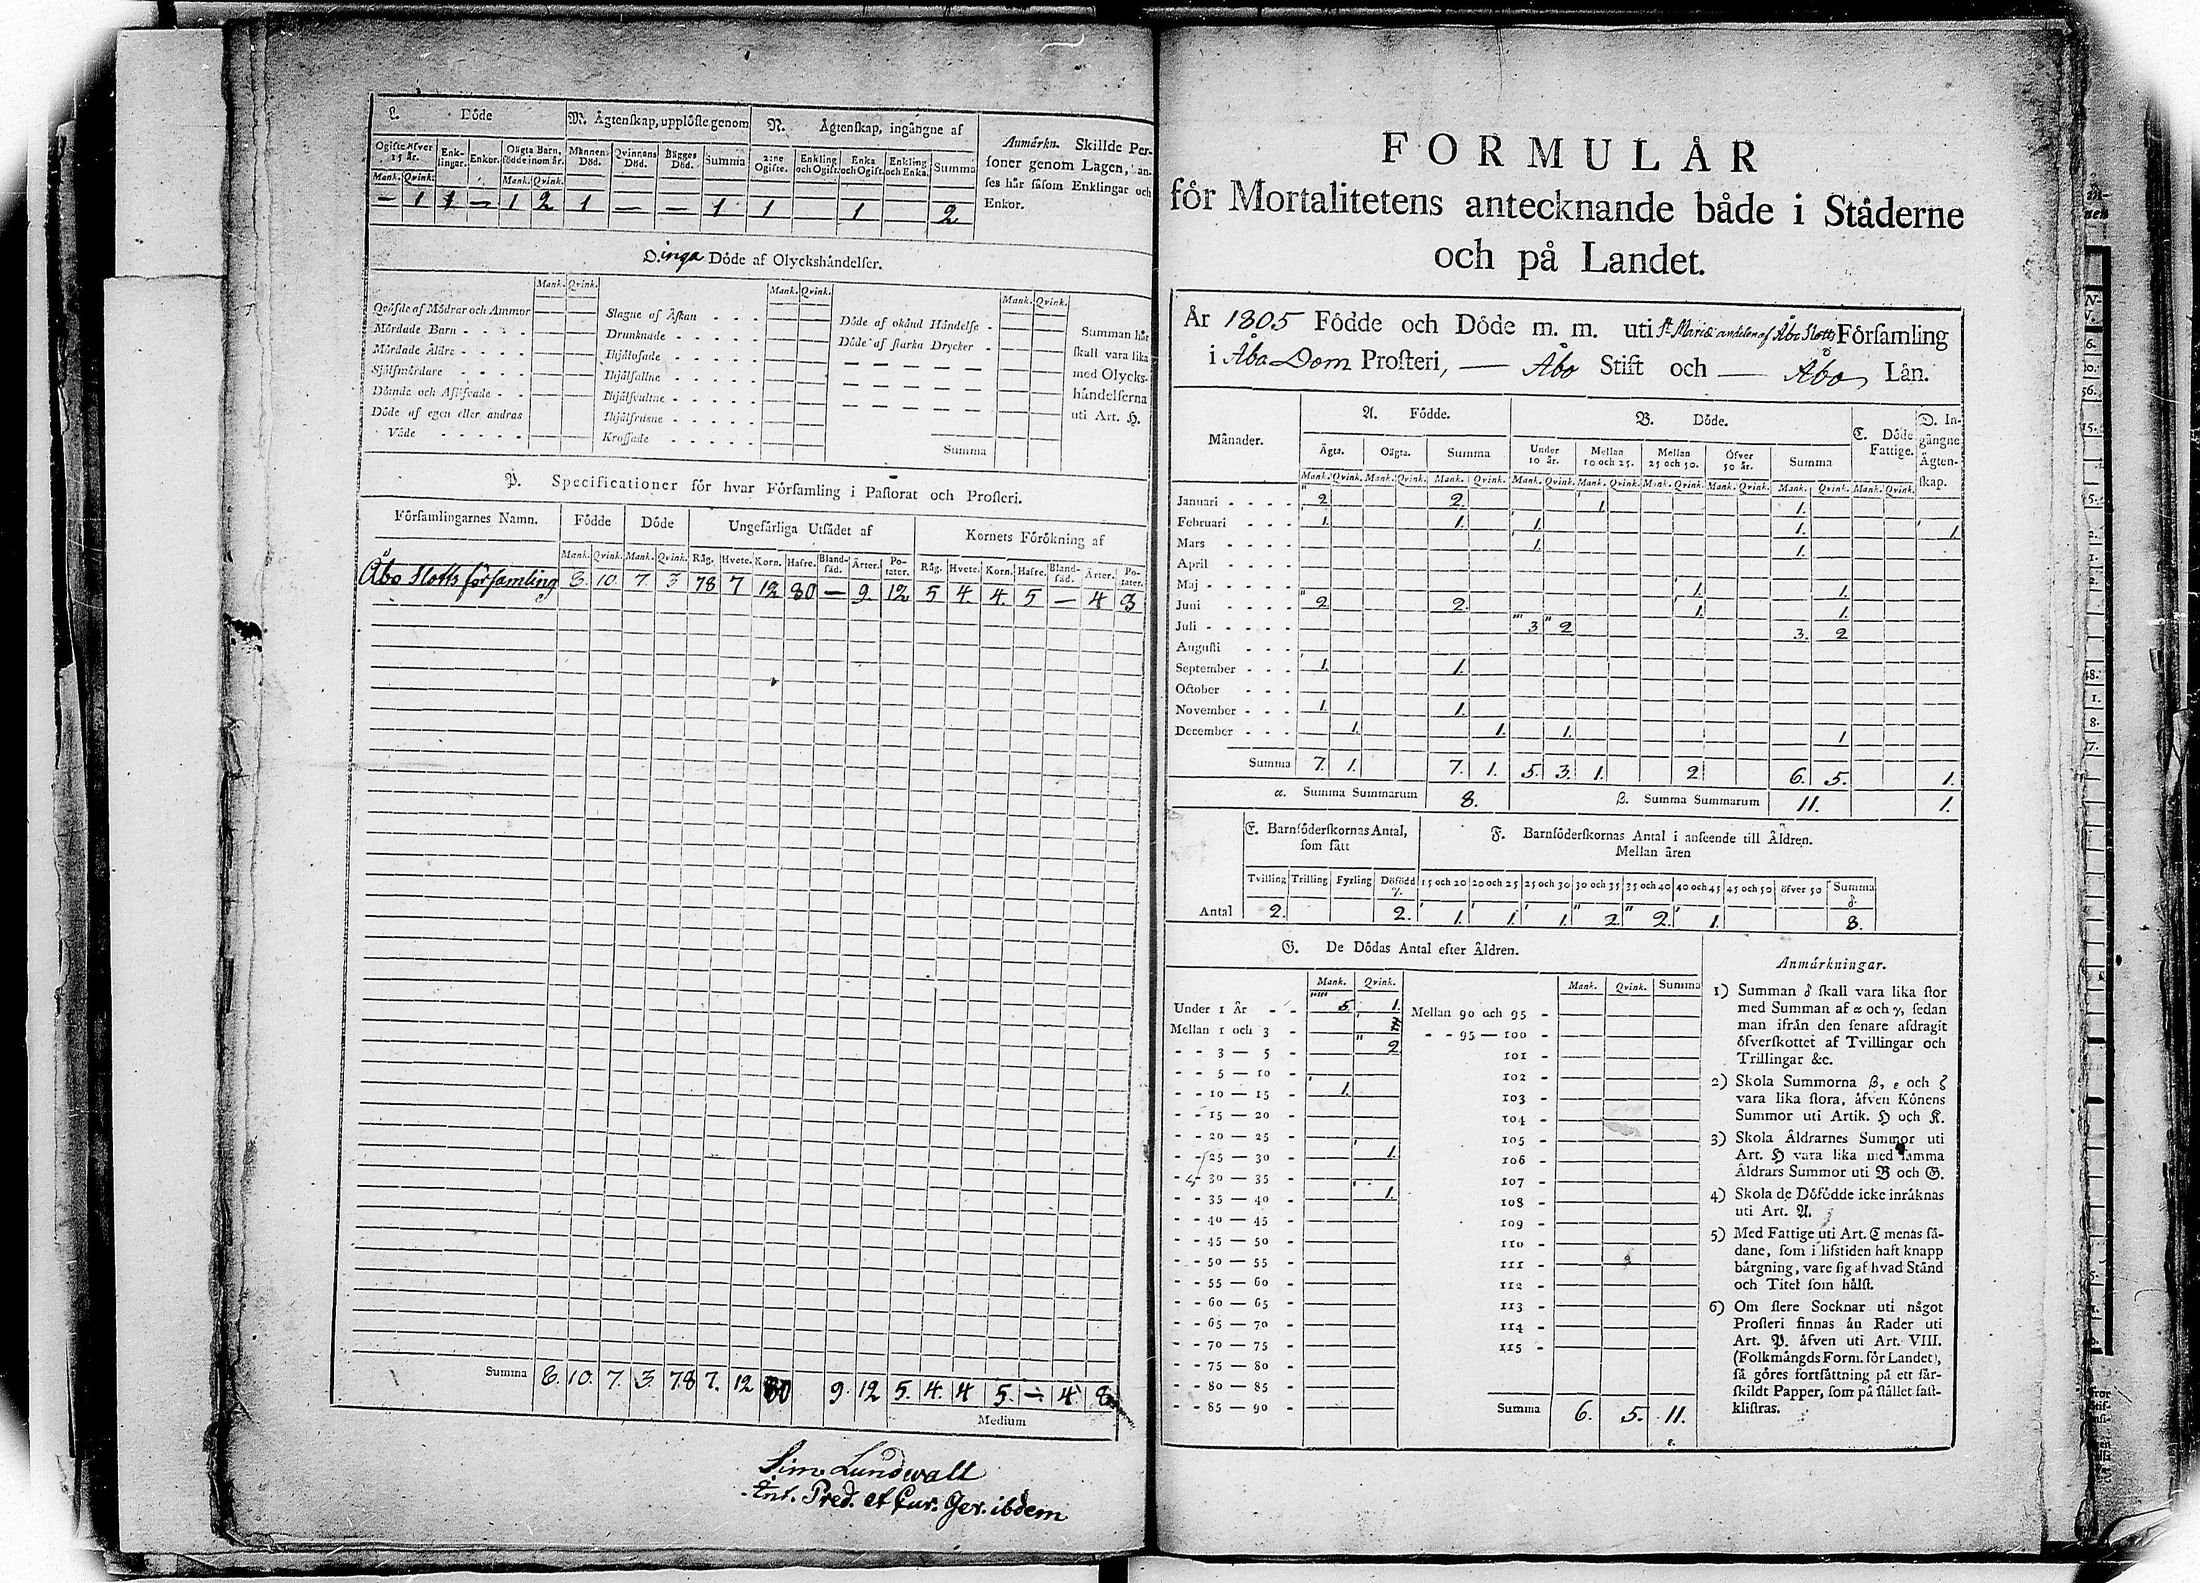 L. Döde
M. Ägtenskap, upplöste genom
N. Ägtenskap, ingångne af
Anmärkn. Skillde Per-
soner genom Lagen, an-
ses här såsom Enklingar och
Enkor.
Ogifte öfver 15 år. Enk-lingar. Enkor. Oägta Barn, födde inom år. Mannens Död. Qvinnans Död. Bägges Död. Summa 2:ne Ogifte. Enkling och Ogift. Enka och Ogift. Enkling och Enka. Summa
Mank. Qvink. Mank. Qvink.
— 1 1 — 1 2 1 — — 1 1 1 2
O. inga Döde af Olyckshändelser.
Mank. Qvink. Mank. Qvink. Mank. Qvink.
Qväfde af Mödrar och Ammor
Mördade Barn
Mördade Äldre
Sjelfmördare
Dömde och Aflifvade
Döde af egen eller andras
Våde
Slagne af Åskan
Drunknade
Ihjälofade
Ihjälfallne
Ihjälfrusne
Krossade
Döde af okänd Händelse
Döde af starka Drycker
Summa
Summan här
skall vara lika
med Olycks-
händelserna
uti Art. H.
P. Specificationer för hvar Församling i Pastorat och Prosteri.
Församlingarnes Namn. Födde Döde Ungefärliga Utsädet af Kornets Förökning af
Mank. Qvink. Mank. Qvink. Råg. Hvete. Korn. Hafre. Bland-säd. Ärter. Po-tater. Råg. Hvete. Korn. Hafre. Bland-säd. Ärter. Po-tater.
Åbo Slotts församling 8. 10. 7. 3. 78 7 12 80 — 9. 12 5 4. 4. 5 — 4 8
Summa 8. 10. 7. 3. 78 7. 12 80 9. 12 5. 4. 4 5. — 4. 8.
Medium
Sim. Lundwall
Pred. et Cur. Ger. ibidem
FORMULÄR
för Mortalitetens antecknande både i Städerne
och på Landet.
År 1805 Födde och Döde m. m. uti St. Mariæ andelen af Åbo Slotts Församling
i Åbo Dom Prosteri, — Åbo Stift och — Åbo Län.
Månader. A. Födde. B. Döde. C. Döde Fattige. D. In-gångne Ägten-skap.
Ägta. Oägta. Summa Under 10 år. Mellan 10 och 25. Mellan 25 och 50. Öfver 50 år. Summa
Mank. Qvink. Mank. Qvink. Mank. Qvink. Mank. Qvink. Mank. Qvink. Mank. Qvink. Mank. Qvink. Mank. Qvink. Mank. Qvink.
Januari 2 2. 1. 1.
Februari 1. 1. 1. 1. 1
Mars 1. 1.
April
Maj 1. 1.
Juni 2 2 1. 1.
Juli 3 2 3. 2
Augusti
September 1. 1.
October
November 1. 1.
December 1. 1. 1. 1
Summa 7. 1. 7. 1. 5. 3. 1. 2 6. 5. 1.
α. Summa Summarum 8. β. Summa Summarum 11. 1.
E. Barnföderskornas Antal,
som fått
F. Barnföderskornas Antal i anseende till Åldren.
Mellan åren
Tvilling Trilling Fyrling Dödfödd γ. 15 och 20 20 och 25 25 och 30 30 och 35 35 och 40 40 och 45 45 och 50 öfver 50 Summa δ.
Antal 2. 2. 1. 1. 1. 2. 2. 1. 8.
G. De Dödas Antal efter Åldren.
Mank. Qvink. Mank. Qvink. Summa
Under 1 År 5. 1.
Mellan 1 och 3
3 — 5 2
5 — 10
10 — 15 1.
15 — 20
20 — 25
25 — 30 1.
30 — 35
35 — 40 1.
40 — 45
45 — 50
50 — 55
55 — 60
60 — 65
65 — 70
70 — 75
75 — 80
80 — 85
85 — 90
Mellan 90 och 95
95 — 100
101
102
103
104
105
106
107
108
109
110
111
112
113
114
115
Summa 6. 5. 11.
ε.
Anmärkningar.
1) Summan δ skall vara lika stor
med Summan af α och γ, sedan
man ifrån den senare afdragit
öfverskottet af Tvillingar och
Trillingar &c.
2) Skola Summorna β, ε och ζ
vara lika stora, äfven Könens
Summor uti Artik. H och K.
3) Skola Åldrarnes Summor uti
Art. H vara lika med samma
Åldrars Summor uti B och G.
4) Skola de Döfödde icke inräknas
uti Art. A.
5) Med Fattige uti Art. C menas så-
dane, som i lifstiden haft knapp
bärgning, vare sig af hvad Stånd
och Titel som hälst.
6) Om flere Socknar uti något
Prosteri finnas än Rader uti
Art. P. äfven uti Art. VIII.
(Folkmängds Form. för Landet),
så göres fortsättning på ett sär-
skildt Papper, som på stället fast-
klistras.